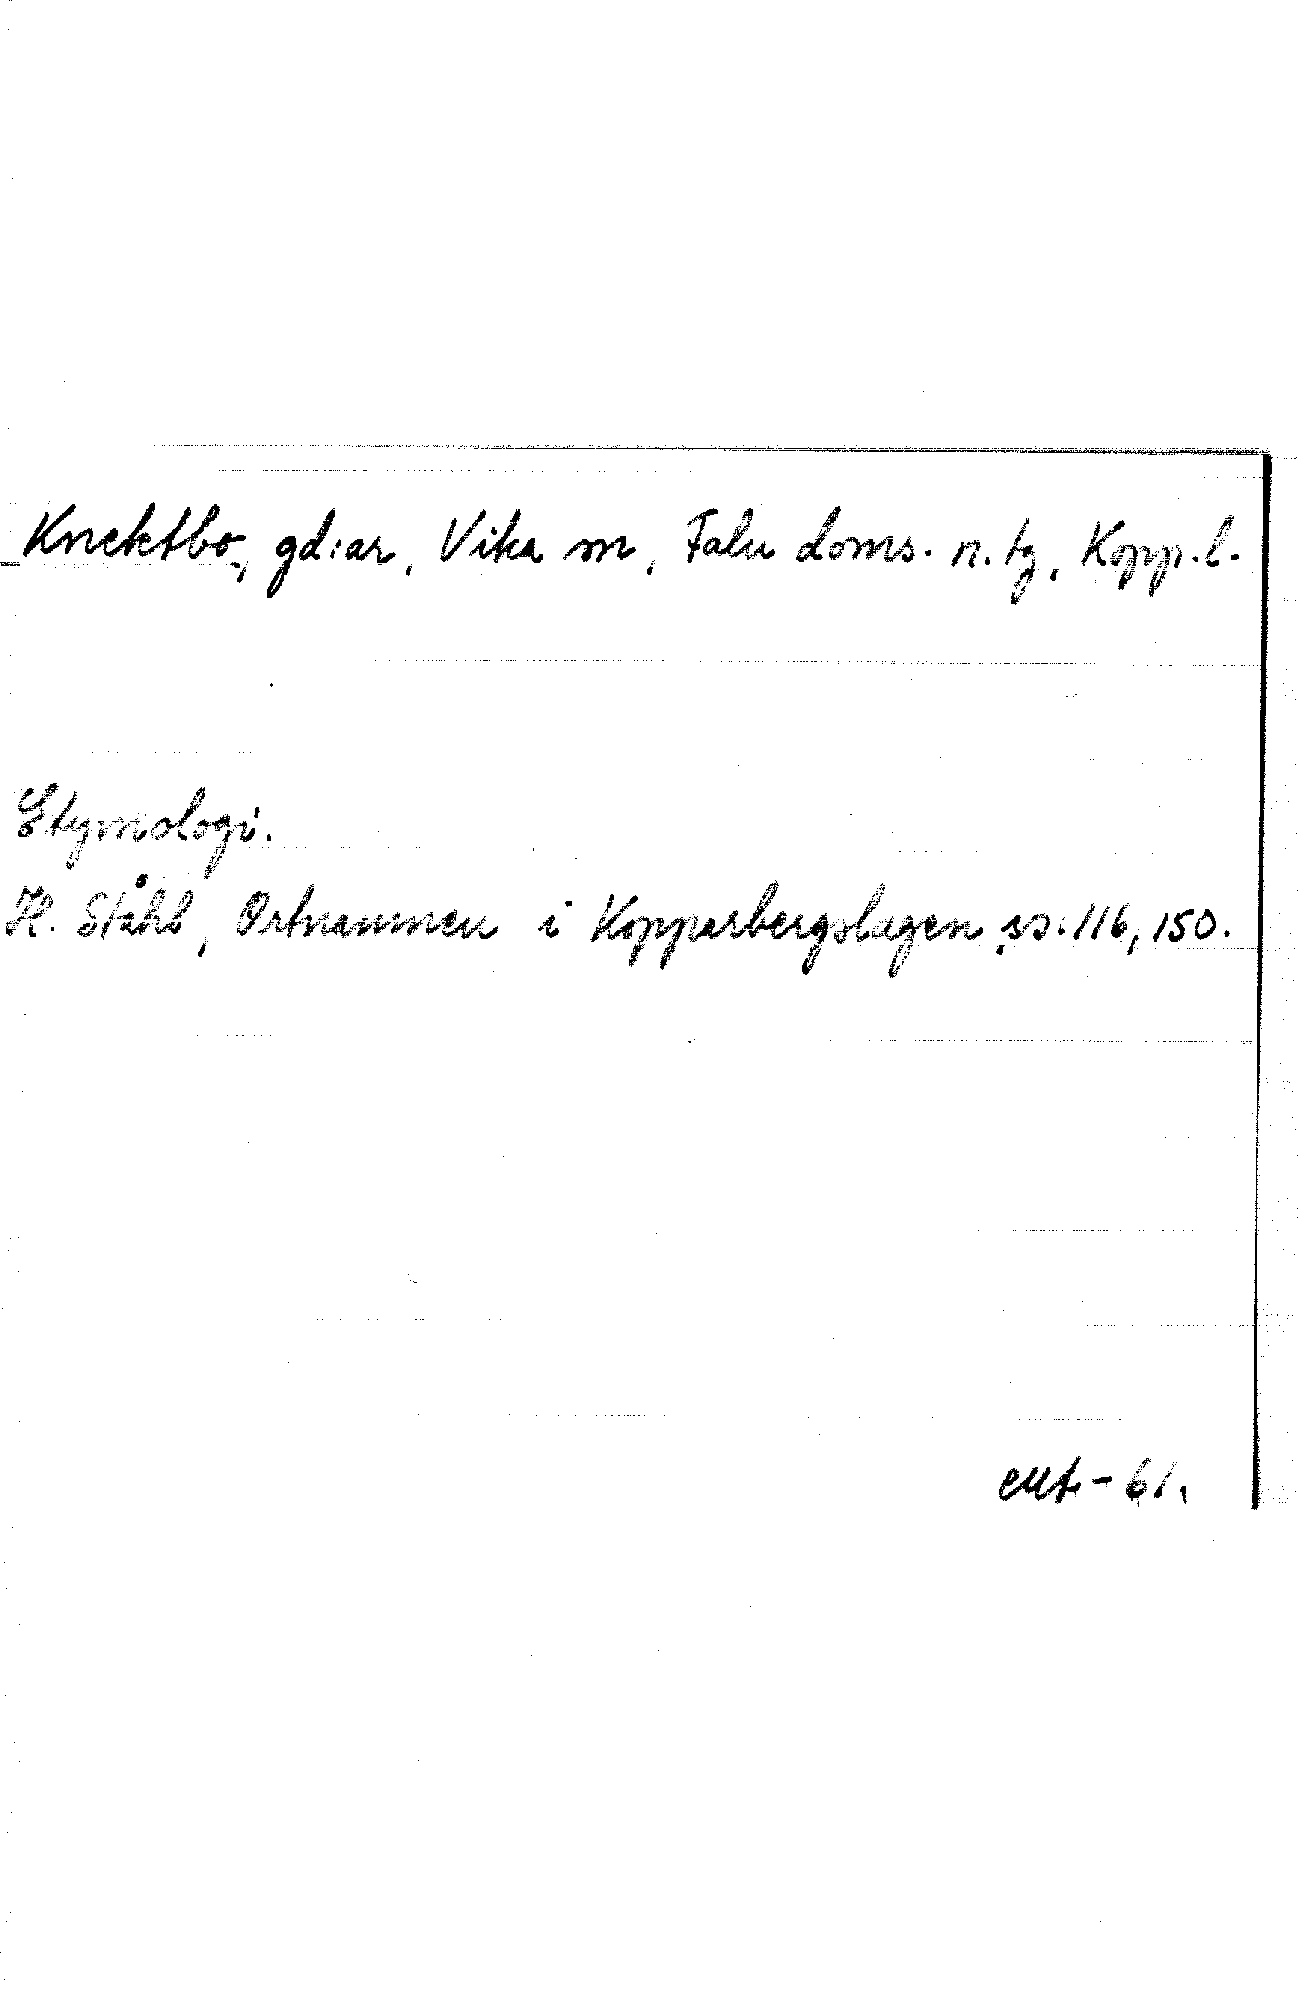 Knektbo, gd:ar, Vika sn, Falu doms. n. tg, Kopp. l.
Etymologi.
H. Ståhl, Ortnamnen i Kopparbergslagen, ss. 116, 150.
-61.